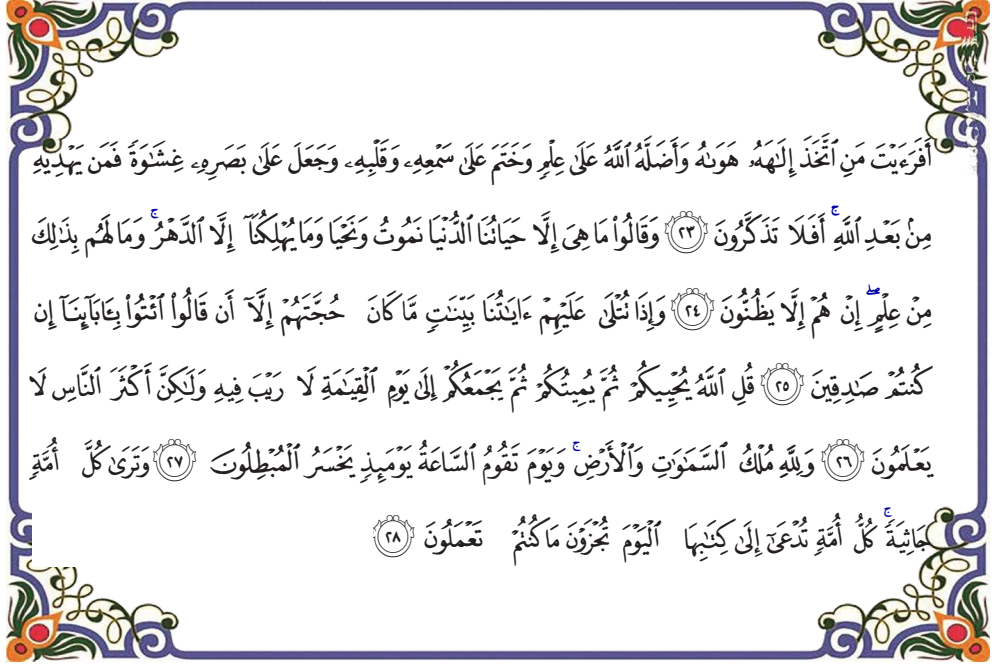 أَفَرَءَيْتَ مَنِ ٱتَّخَذَ إِلَٰهَهُۥ هَوَىٰهُ وَأَضَلَّهُ ٱللَّهُ عَلَىٰ عِلْمٍ وَخَتَمَ عَلَىٰ سَمْعِهِۦ وَقَلْبِهِۦ وَجَعَلَ عَلَىٰ بَصَرِهِۦ غِشَٰوَةً فَمَن يَهْدِيهِ
مِنۢ بَعْدِ ٱللَّهِ ۚ أَفَلَا تَذَكَّرُونَ ﴿٢٣﴾ وَقَالُوا۟ مَا هِىَ إِلَّا حَيَاتُنَا ٱلدُّنْيَا نَمُوتُ وَنَحْيَا وَمَا يُهْلِكُنَآ إِلَّا ٱلدَّهْرُ ۚ وَمَا لَهُم بِذَٰلِكَ
مِنْ عِلْمٍ ۖ إِنْ هُمْ إِلَّا يَظُنُّونَ ﴿٢٤﴾ وَإِذَا تُتْلَىٰ عَلَيْهِمْ ءَايَٰتُنَا بَيِّنَٰتٍ مَّا كَانَ حُجَّتَهُمْ إِلَّآ أَن قَالُوا۟ ٱئْتُوا۟ بِـَٔابَآئِنَآ إِن
كُنتُمْ صَٰدِقِينَ ﴿٢٥﴾ قُلِ ٱللَّهُ يُحْيِيكُمْ ثُمَّ يُمِيتُكُمْ ثُمَّ يَجْمَعُكُمْ إِلَىٰ يَوْمِ ٱلْقِيَٰمَةِ لَا رَيْبَ فِيهِ وَلَٰكِنَّ أَكْثَرَ ٱلنَّاسِ لَا
يَعْلَمُونَ ﴿٢٦﴾ وَلِلَّهِ مُلْكُ ٱلسَّمَٰوَٰتِ وَٱلْأَرْضِ ۚ وَيَوْمَ تَقُومُ ٱلسَّاعَةُ يَوْمَئِذٍ يَخْسَرُ ٱلْمُبْطِلُونَ ﴿٢٧﴾ وَتَرَىٰ كُلَّ أُمَّةٍ
جَاثِيَةً ۚ كُلُّ أُمَّةٍ تُدْعَىٰٓ إِلَىٰ كِتَٰبِهَا ٱلْيَوْمَ تُجْزَوْنَ مَا كُنتُمْ تَعْمَلُونَ ﴿٢٨﴾